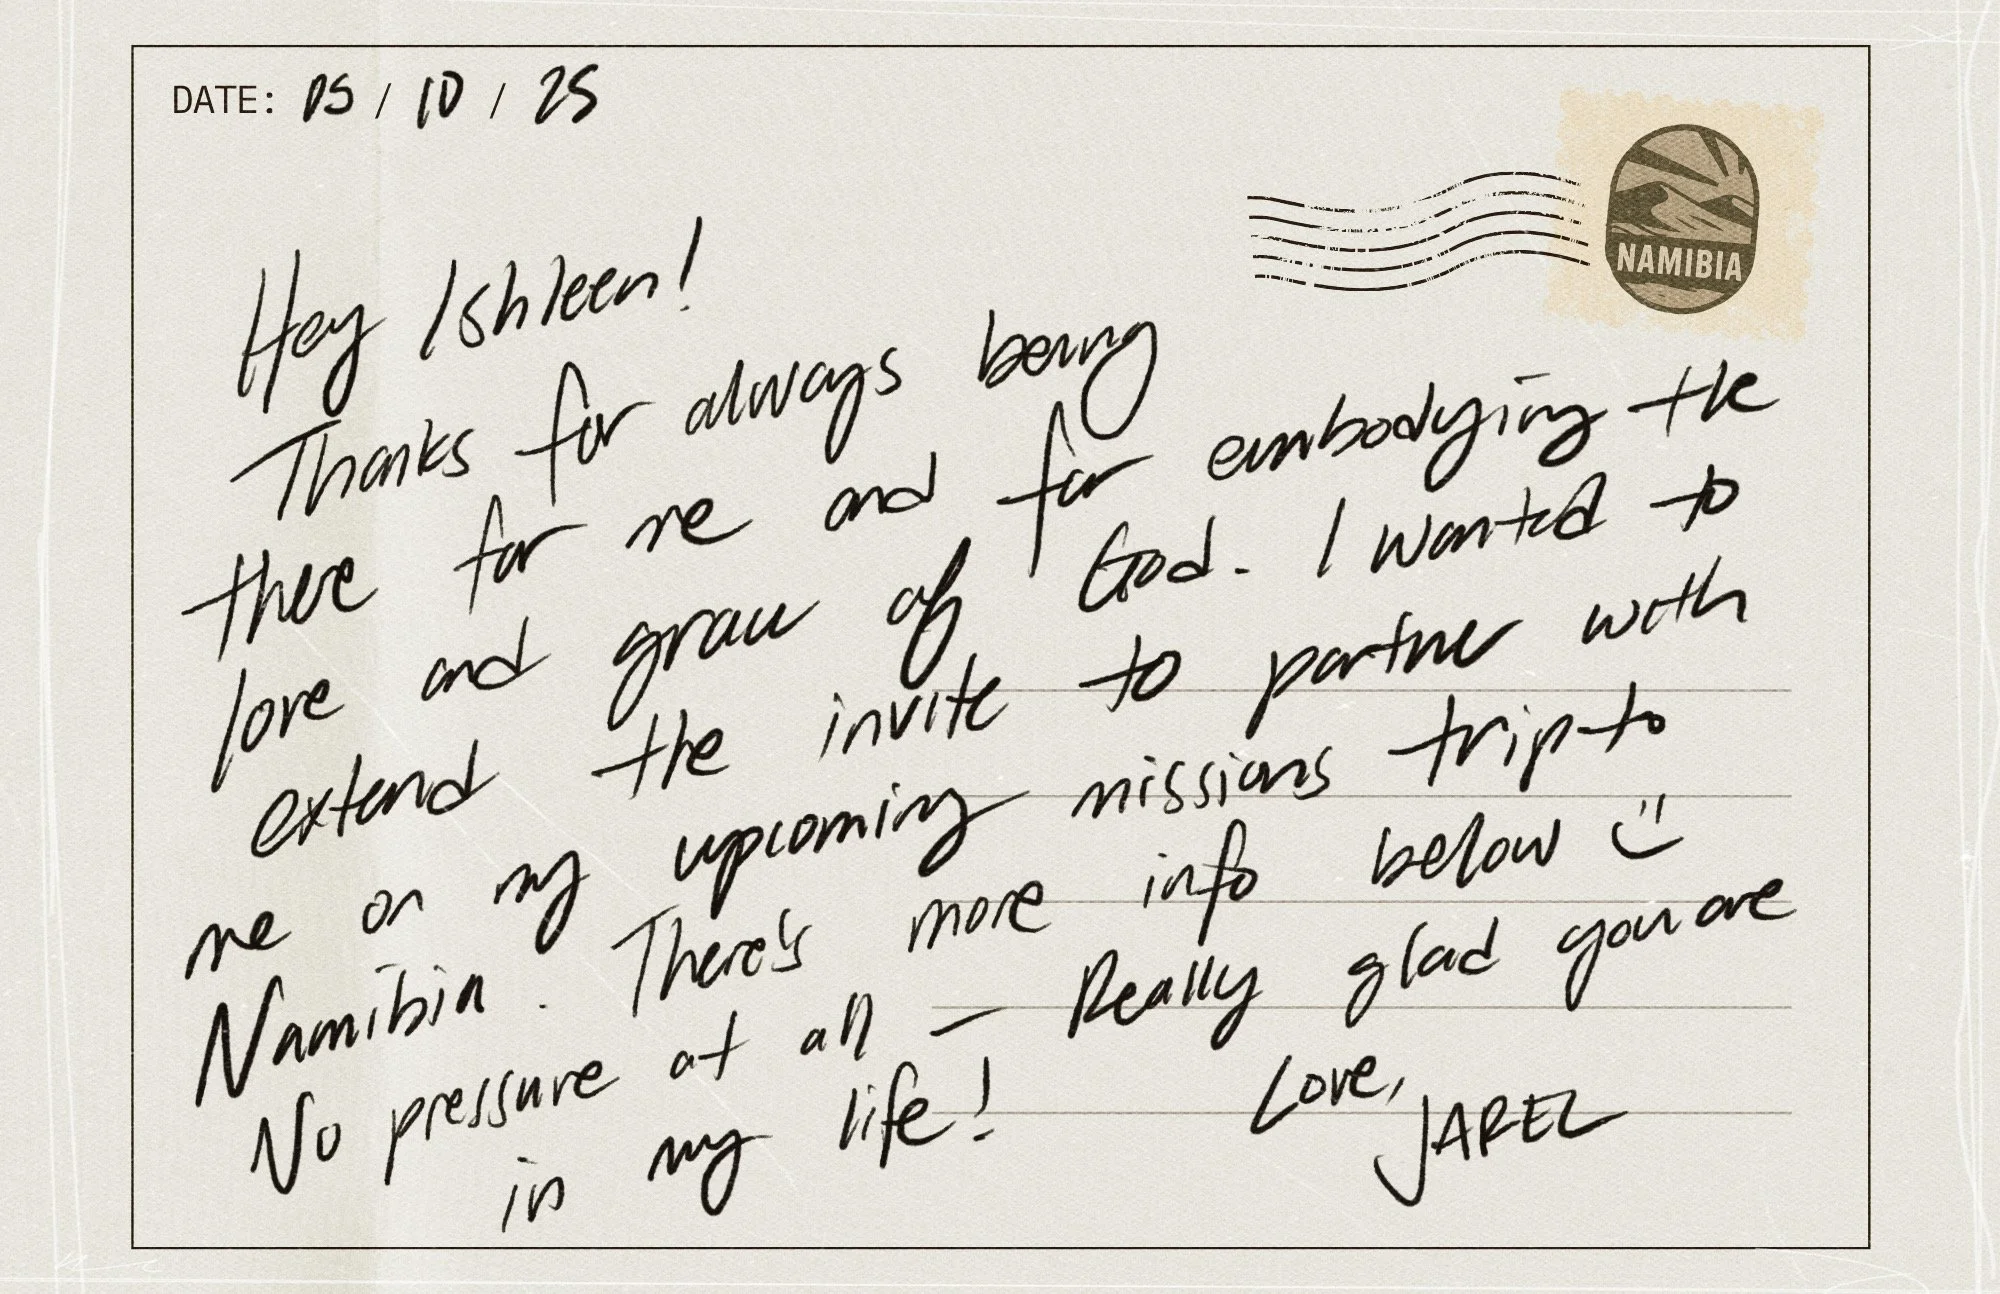 DATE: 05 / 10 / 25
NAMIBIA
Hey Ishleen!
Thanks for always being
there for me and for embodying the
love and grace of God. I wanted to
extend the invite to partner with
me on my upcoming missions trip to
Namibia. There's more info below :)
No pressure at all — Really glad you are
in my life!
Love,
JAREL